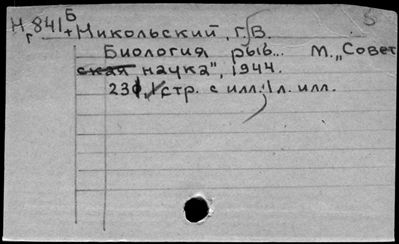 Н,841 Б
Никольский, Г.В.
Биология рыб... М. „Совет
ская наука", 1944.
стр. с илл.; 1 л. илл.